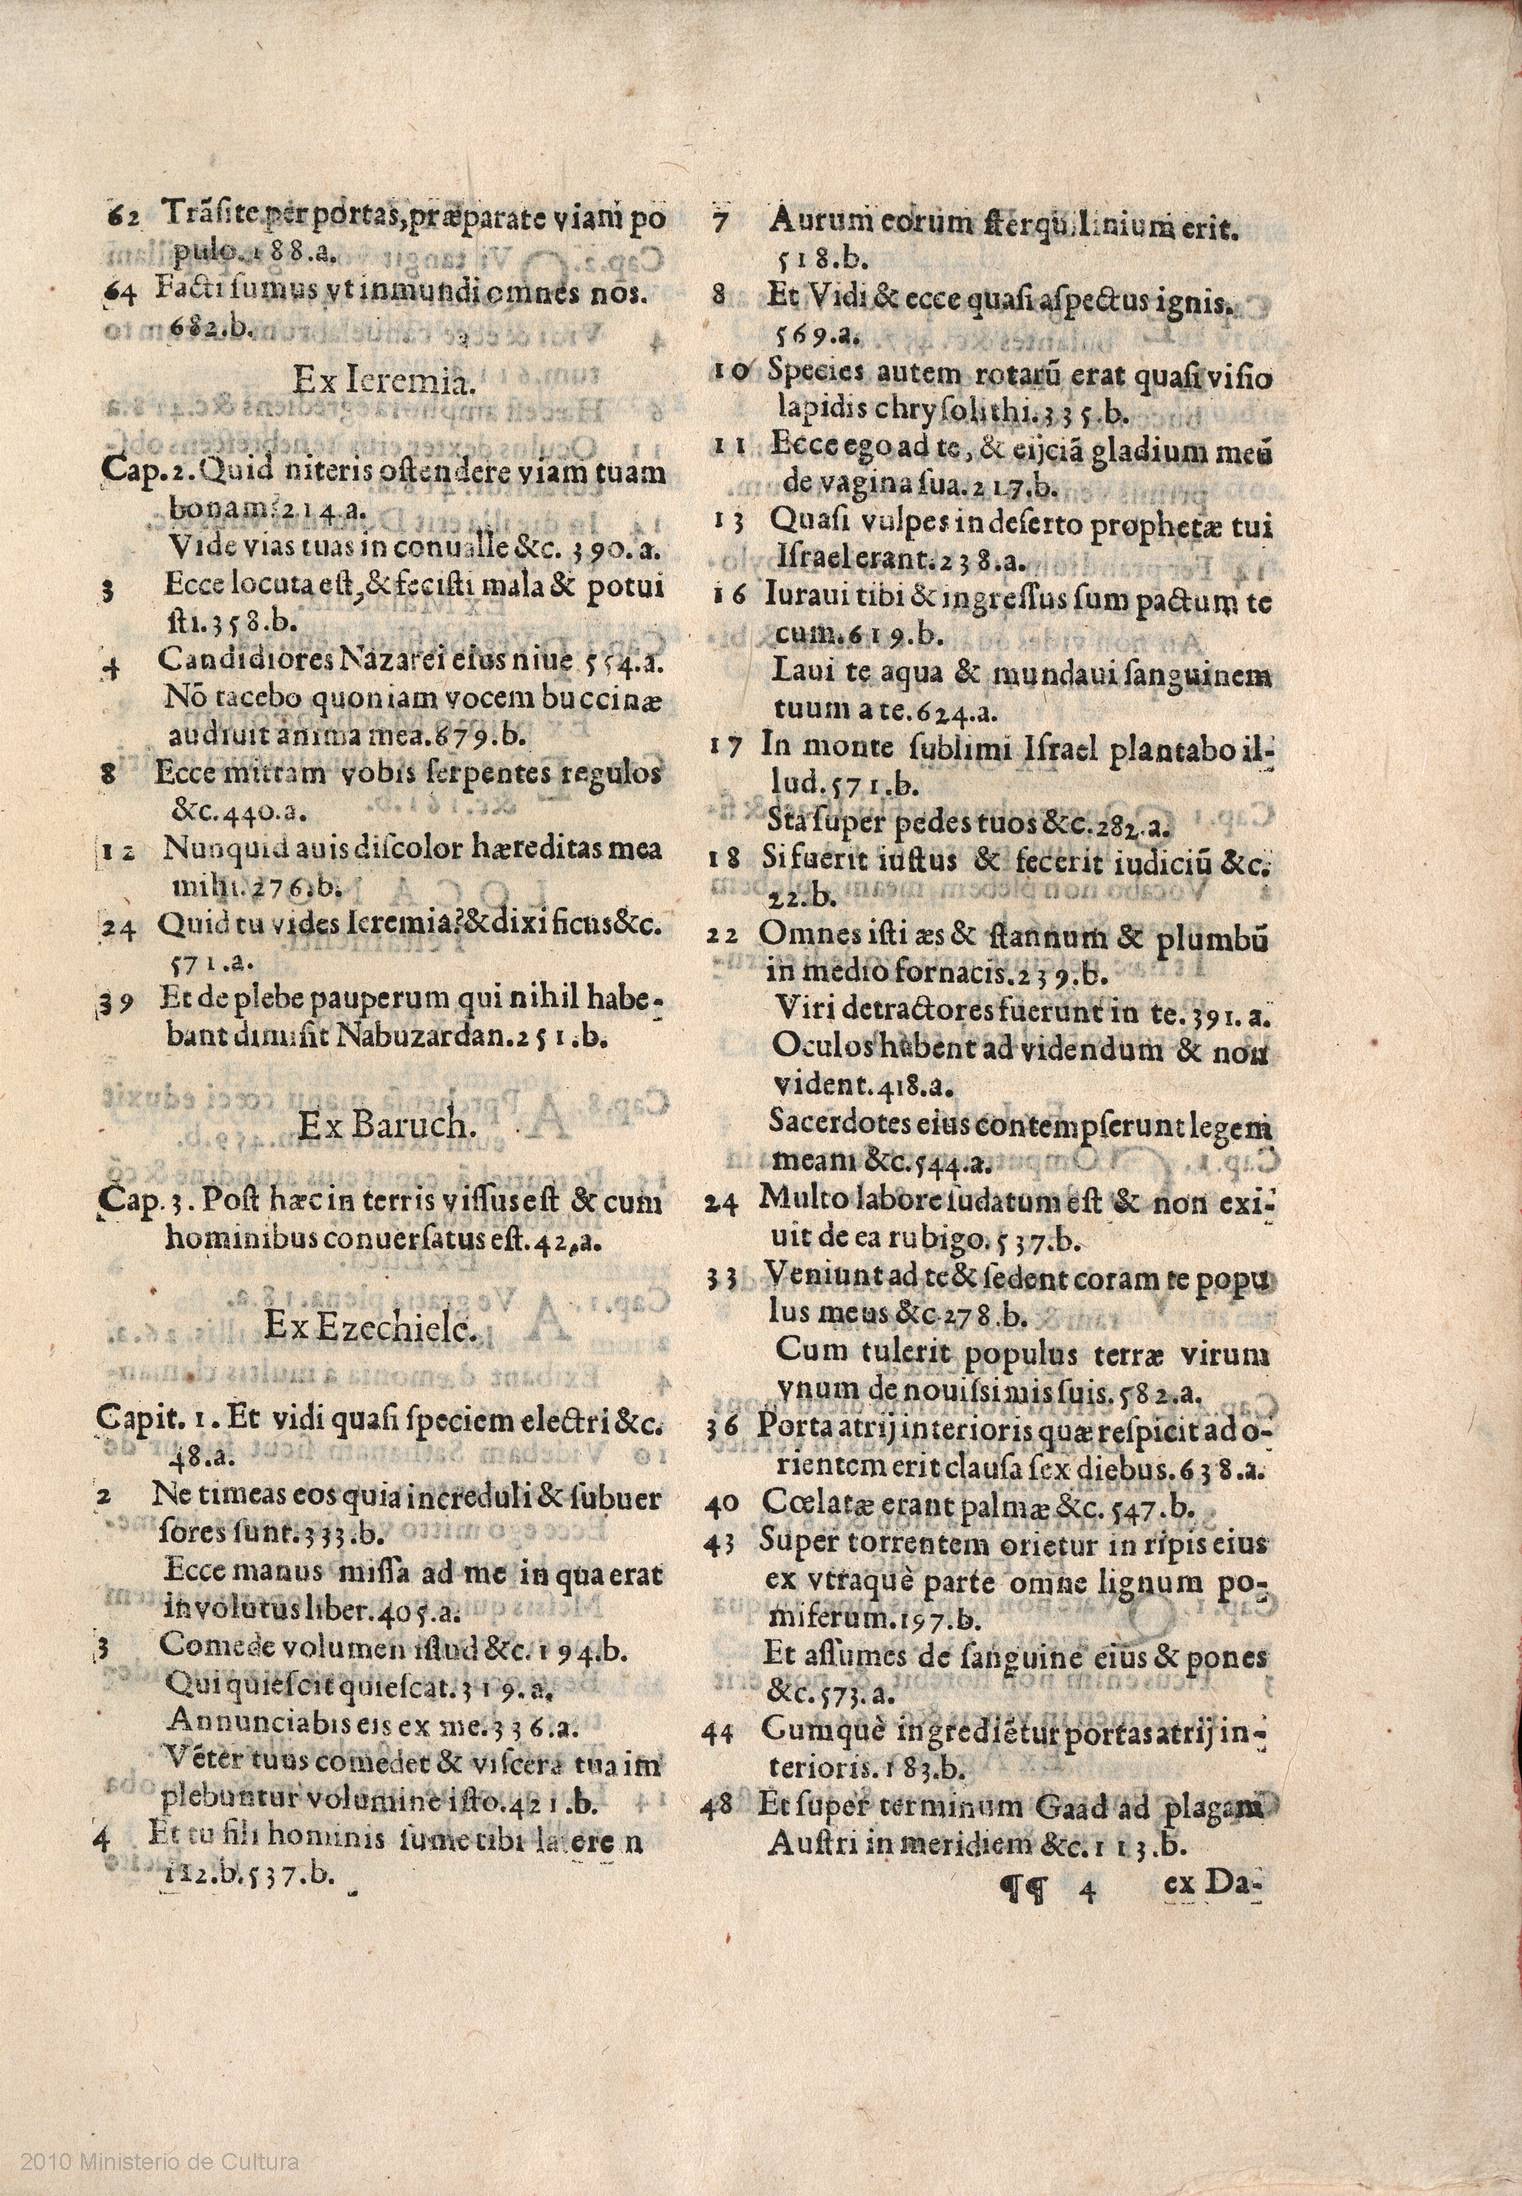 62 Trãsite per portas, præparate viam po
pulo. 188.a.
64 Facti sumus vt inmundi omnes nos.
682.b.
Ex Ieremia.
Cap. 2. Quid niteris ostendere viam tuam
bonam? 214.a.
Vide vias tuas in conualle &c. 390.a.
3 Ecce locuta est, & fecisti mala & potui
sti. 358.b.
4 Candidiores Nazarei eius niue 554.a.
Nõ tacebo quoniam vocem buccinæ
audiuit anima mea. 679.b.
8 Ecce mittam vobis serpentes regulos
&c. 440.a.
12 Nunquid auis discolor hæreditas mea
mihi. 276.b.
24 Quid tu vides Ieremia? & dixi ficus &c.
571.a.
39 Et de plebe pauperum qui nihil habe-
bant dimisit Nabuzardan. 251.b.
Ex Baruch.
Cap. 3. Post hæc in terris vissus est & cum
hominibus conuersatus est. 42.a.
Ex Ezechiele.
Capit. 1. Et vidi quasi speciem electri &c.
48.a.
2 Ne timeas eos quia increduli & subuer
sores sunt. 333.b.
Ecce manus missa ad me in qua erat
involutus liber. 405.a.
3 Comede volumen istud &c. 194.b.
Qui quiescit quiescat. 319.a.
Annunciabis eis ex me. 336.a.
Vẽter tuus comedet & viscera tua im
plebuntur volumine isto. 421.b.
4 Et tu fili hominis sume tibi laterem
112.b. 537.b.
7 Aurum eorum sterquilinium erit.
518.b.
8 Et Vidi & ecce quasi aspectus ignis.
569.a.
10 Species autem rotarũ erat quasi visio
lapidis chrysolithi. 335.b.
11 Ecce ego ad te, & eijciã gladium meũ
de vagina sua. 217.b.
13 Quasi vulpes in deserto prophetæ tui
Israel erant. 238.a.
16 Iuraui tibi & ingressus sum pactum te
cum. 619.b.
Laui te aqua & mundaui sanguinem
tuum a te. 624.a.
17 In monte sublimi Israel plantabo il-
lud. 571.b.
Sta super pedes tuos &c. 282.a.
18 Si fuerit iustus & fecerit iudiciũ &c.
22.b.
22 Omnes isti æs & stannum & plumbũ
in medio fornacis. 239.b.
Viri detractores fuerunt in te. 391.a.
Oculos habent ad videndum & non
vident. 418.a.
Sacerdotes eius contempserunt legem
meam &c. 544.a.
24 Multo labore sudatum est & non exi-
uit de ea rubigo. 537.b.
33 Veniunt ad te & sedent coram te popu
lus meus &c. 278.b.
Cum tulerit populus terræ virum
vnum de nouissimis suis. 582.a.
36 Porta atrij interioris quæ respicit ad o-
rientem erit clausa sex diebus. 638.a.
40 Cœlatæ erant palmæ &c. 547.b.
43 Super torrentem orietur in ripis eius
ex vtraquè parte omne lignum po-
miferum. 197.b.
Et assumes de sanguine eius & pones
&c. 573.a.
44 Cumquè ingrediẽtur portas atrij in-
terioris. 183.b.
48 Et super terminum Gaad ad plagam
Austri in meridiem &c. 113.b.
¶¶ 4 ex Da-
2010 Ministerio de Cultura